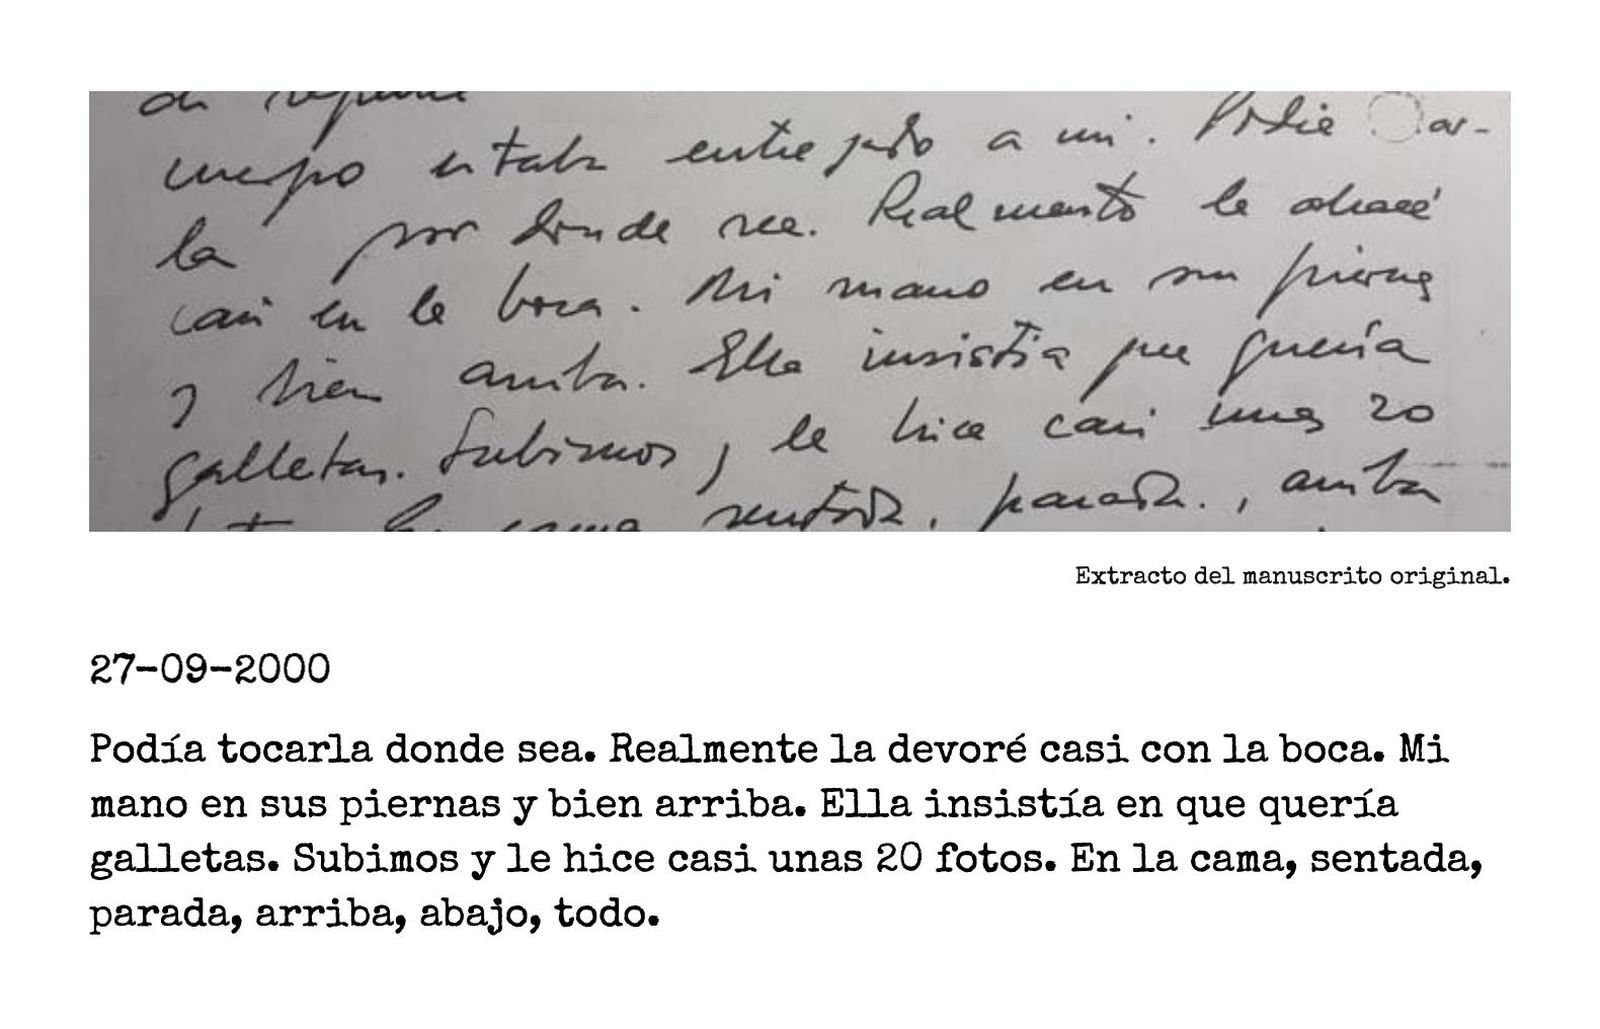 cuerpo estaba entregado a mi. Podía
la por donde sea. Realmente la
casi en la boca. Mi mano en sus piernas
y bien arriba. Ella insistía que quería
galletas. Subimos y le hice casi unas 20
cama sentada, parada, arriba
Extracto del manuscrito original.
27-09-2000
Podía tocarla donde sea. Realmente la devoré casi con la boca. Mi
mano en sus piernas y bien arriba. Ella insistía en que quería
galletas. Subimos y le hice casi unas 20 fotos. En la cama, sentada,
parada, arriba, abajo, todo.